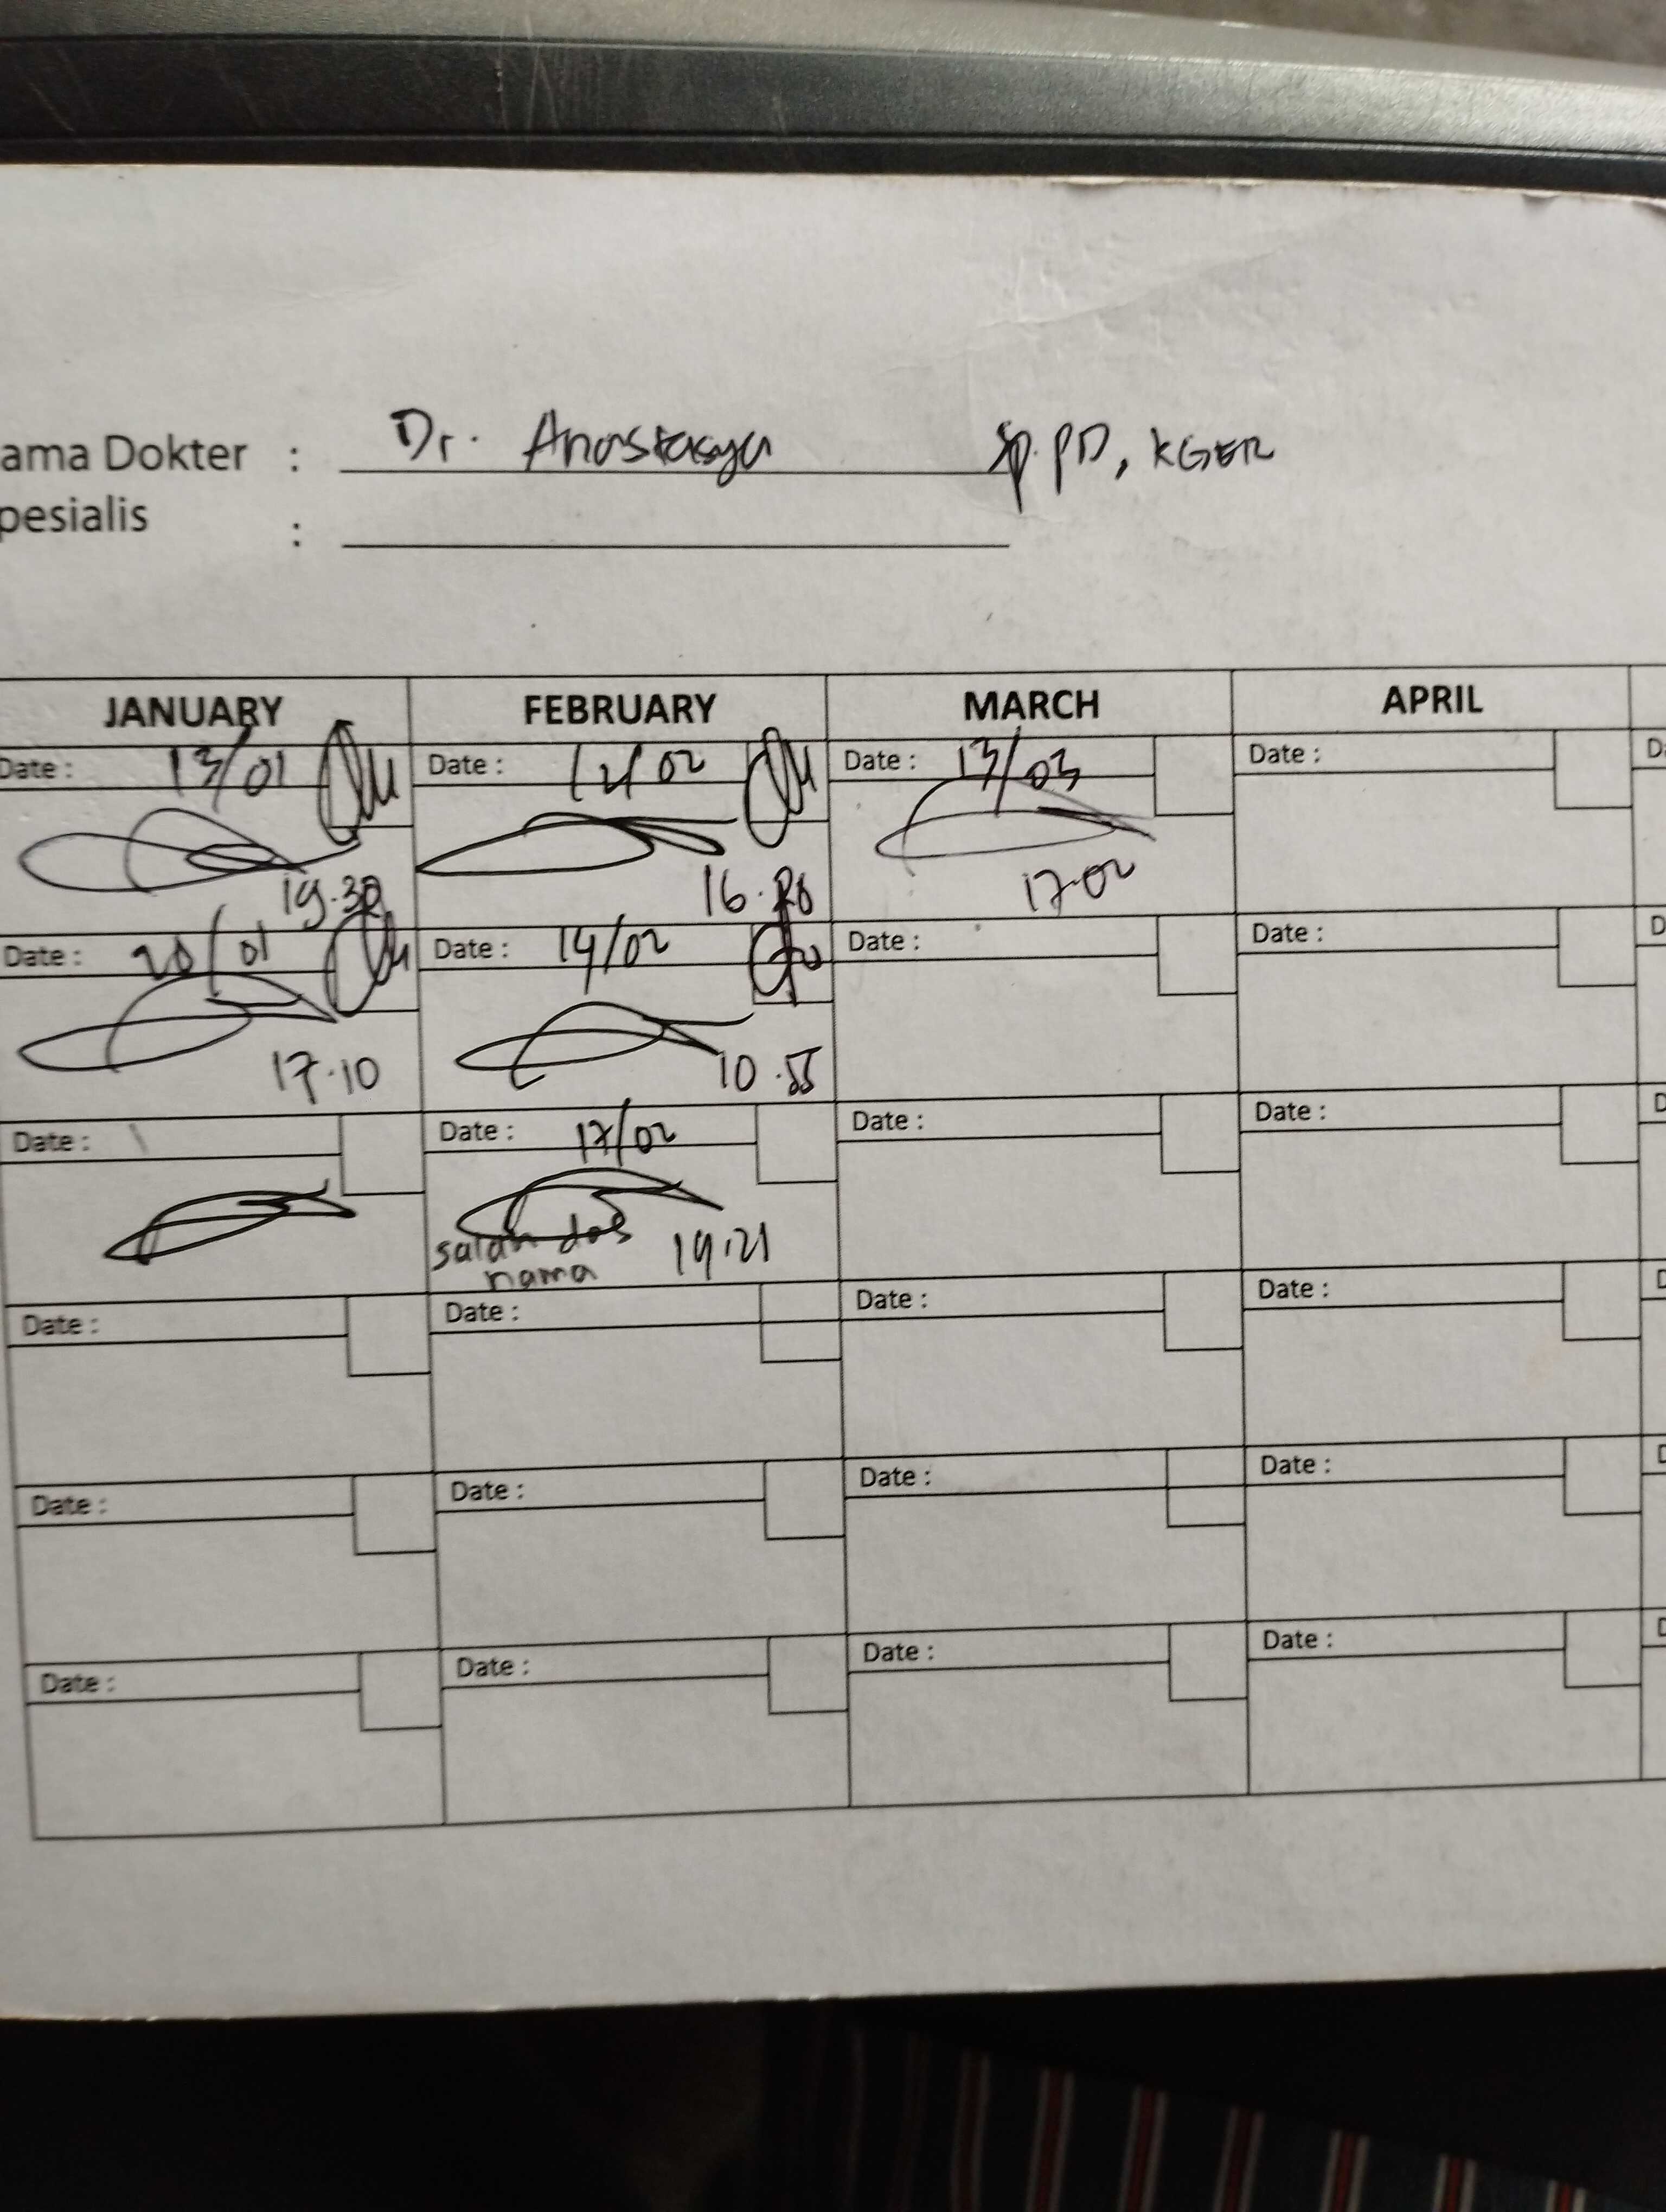 ama Dokter : Dr. Anastasya Sp.PD, KGER
pesialis :
JANUARY FEBRUARY MARCH APRIL
Date : 13/01 Date : 12/02 Date : 13/03 Date : D
19.30 16. 17.02
Date : 20/01 Date : 14/02 Date : Date : D
17.10 10.55
Date : Date : 17/02 Date : Date : D
salah dos 19.21
nama
Date : Date : Date : Date : D
Date : Date : Date : Date : D
Date : Date : Date : Date : D